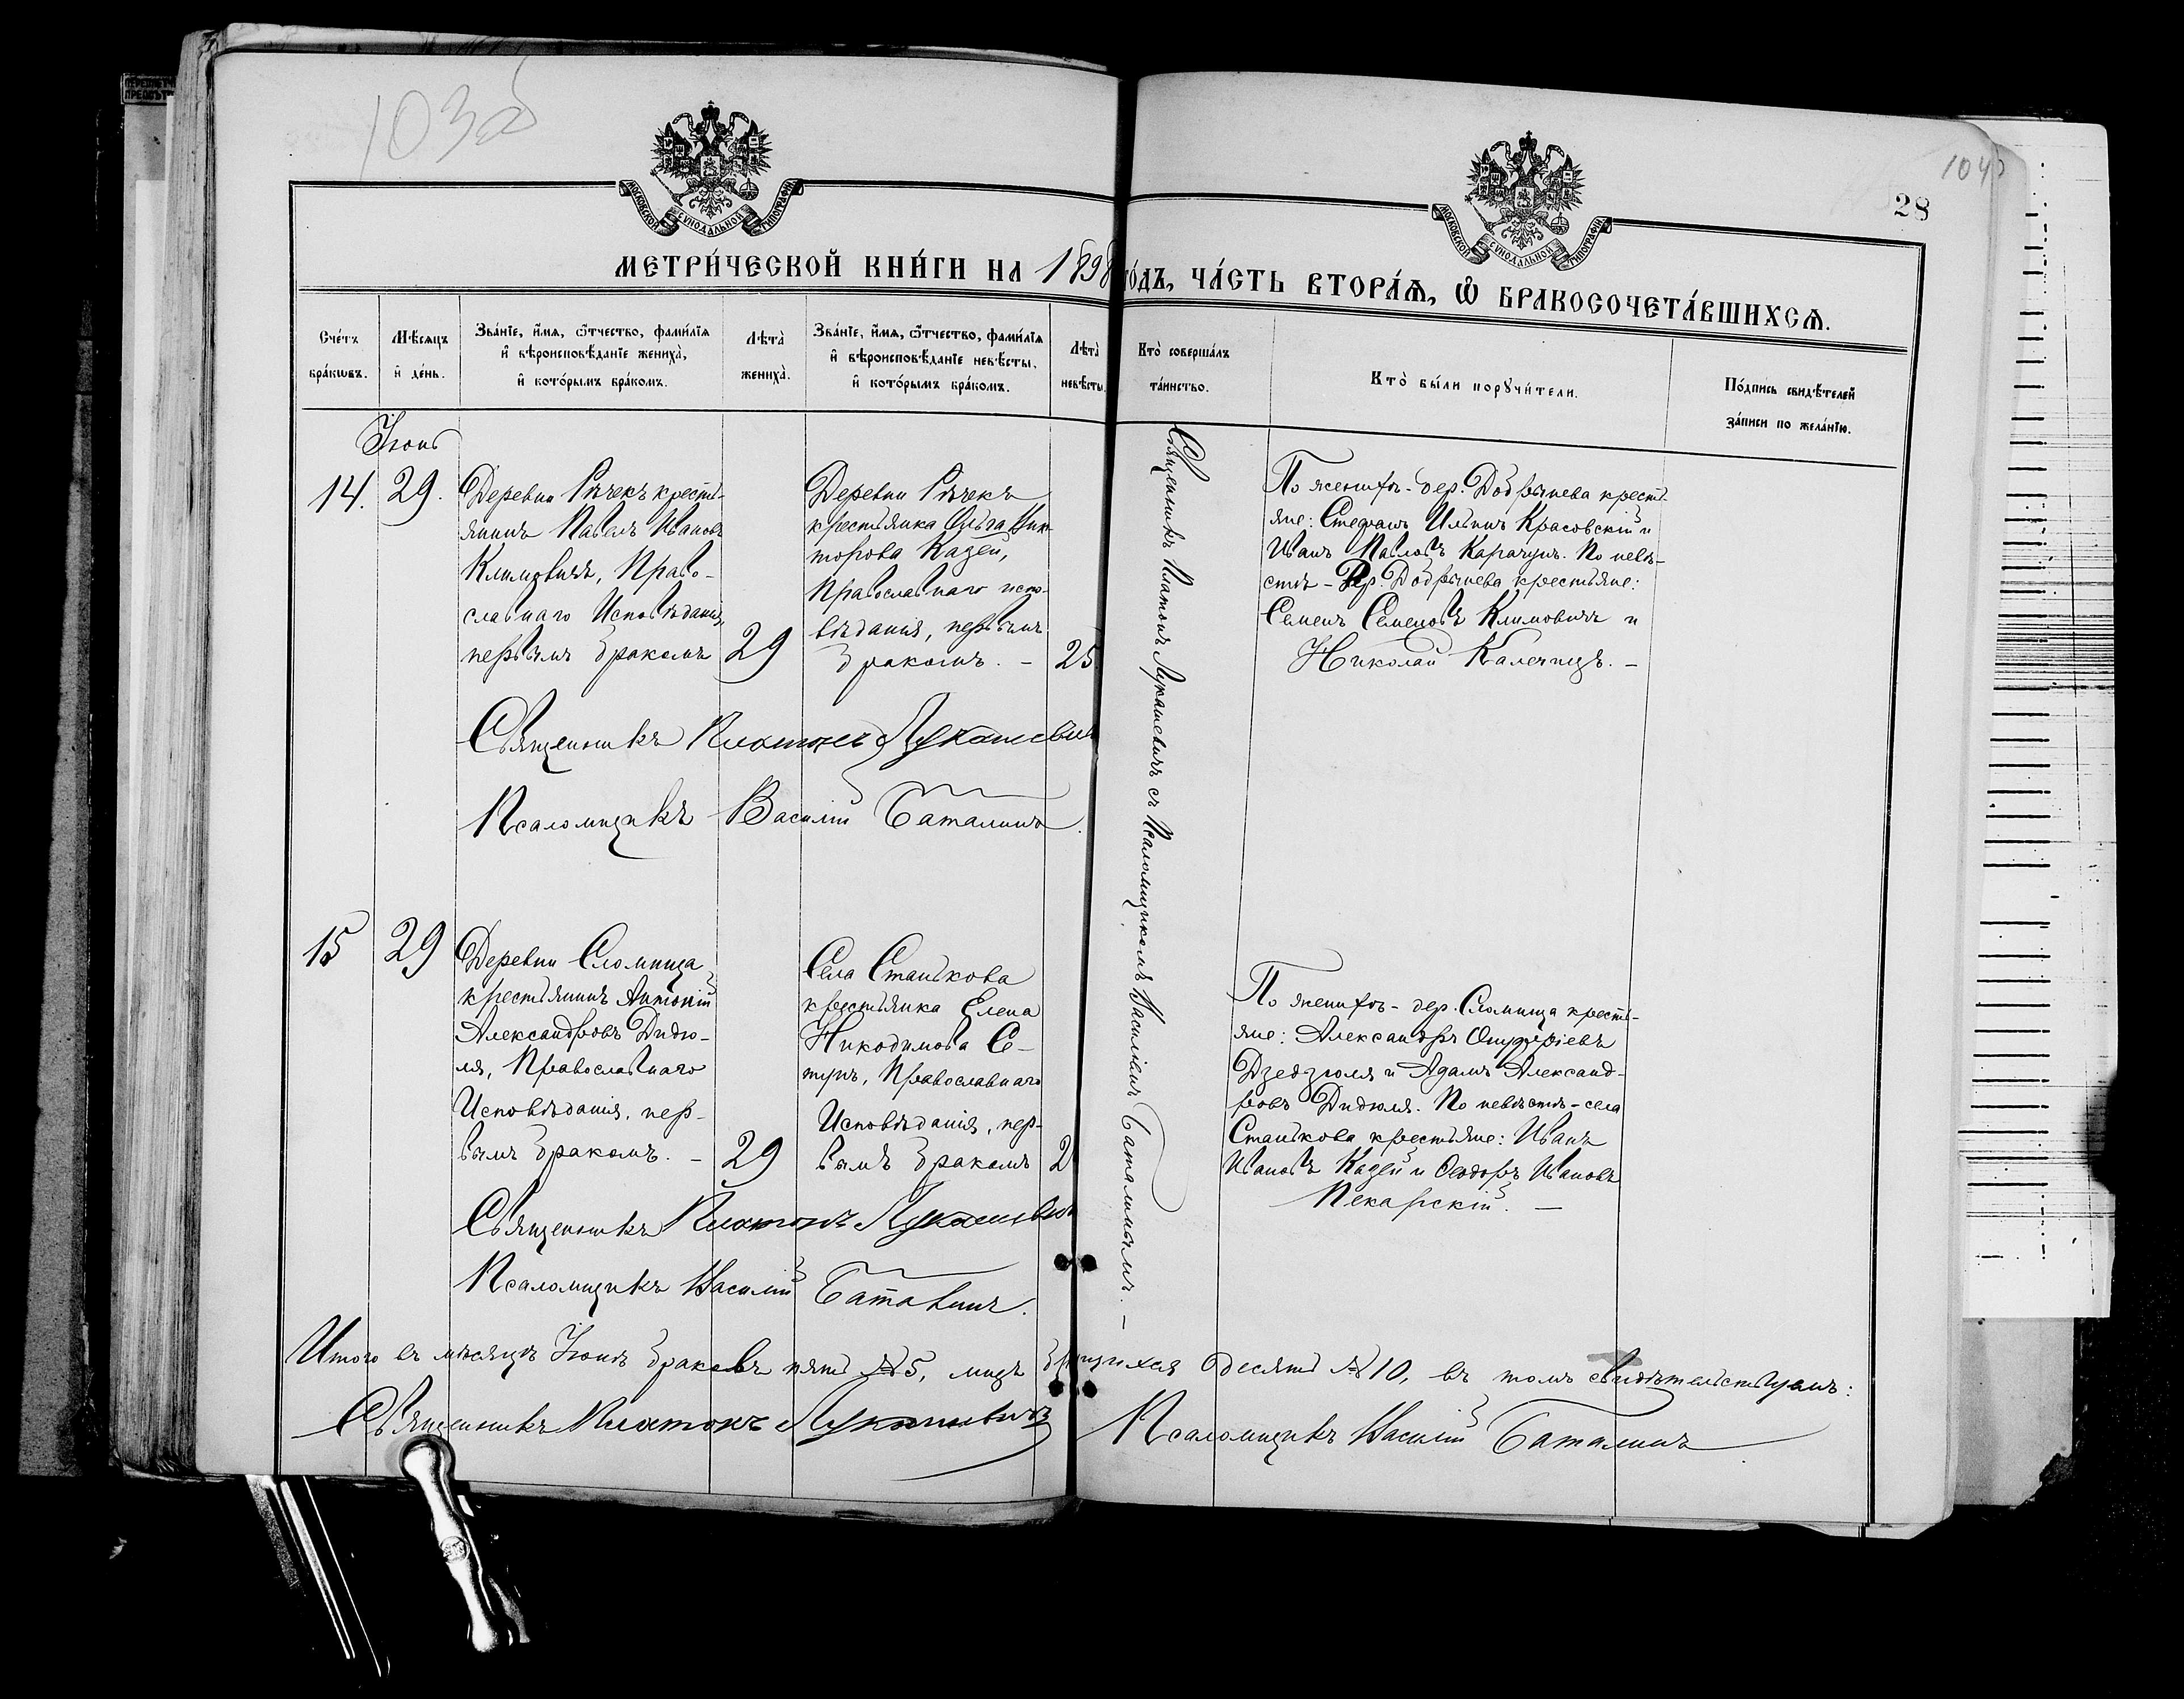 103об
104
28
МОСКОВСКОЙ СѴНОДАЛЬНОЙ ТИПОГРАФІИ
МОСКОВСКОЙ СѴНОДАЛЬНОЙ ТИПОГРАФІИ
МЕТРИ́ЧЕСКОЙ КНИ́ГИ НА 1898 ГО́ДЪ, ЧА́СТЬ ВТОРА́Ѧ, Ѽ БРАКОСОЧЕТА́ВШИХСѦ.
Сче́тъ
бра́кѡвъ.
Мѣ́сяцъ
и҆ де́нь.
Зва́нїе, и҆́мѧ, ѻ҆́тчество, фами́лїѧ
и҆ вѣроисповѣ́данїе жениха̀,
и҆ кото́рымъ бра́комъ.
Лѣ́та̀
жениха̀.
Зва́нїе, и҆́мѧ, ѻ҆́тчество, фами́лїѧ
и҆ вѣроисповѣ́данїе невѣ́сты,
и҆ кото́рымъ бра́комъ.
Лѣ́та̀
невѣ́сты.
Кто̀ соверша́лъ
та́инство.
Кто̀ бы́ли порꙋчи́тели.
По́дпись свидѣ́телей
за́писи по жела́нїю.
Іюнь
14.
29.
Деревни Рѣчекъ кресть-
янинъ Павелъ Ивановъ
Климовичъ, Право-
славнаго Исповѣданія,
первымъ бракомъ
29
Деревни Рѣчекъ
крестьянка Ольга Вик-
торова Кадей,
Православнаго испо-
вѣданія, первымъ
бракомъ. -
25
Священникъ Платонъ Лукашевичъ съ Псаломщикомъ Василіемъ Баталинымъ. —
По женихѣ - дер. Добринева кресть-
яне: Стефанъ Ильинъ Красовскій и
Иванъ Павловъ Карачунъ. По невѣ-
стѣ - Дер. Добринева крестьяне:
Семенъ Семеновъ Климовичъ и
Николай Калечицъ. -
Священникъ Платонъ Лукашевичъ
Псаломщикъ Василій Баталинъ.
15
29
Деревни Сломница
крестьянинъ Антоній
Александровъ Дидю-
ля, Православнаго
Исповѣданія, пер-
вымъ бракомъ. -
29
Села Станькова
крестьянка Елена
Никодимова Се-
тунъ, Православнаго
Исповѣданія, пер-
вымъ бракомъ
2
По женихѣ - дер. Сломница кресть-
яне: Александръ Онуфріевъ
Дзедзюля и Адамъ Александ-
ровъ Дидюля. По невѣстѣ - села
Станькова крестьяне: Иванъ
Ивановъ Кадей и Ѳеодоръ Ивановъ
Пекарскій. —
Священникъ Платонъ Лукашевичъ
Псаломщикъ Василій Баталинъ.
Итого въ мѣсяцѣ Іюнѣ браковъ пять №5, лицъ брачущихся десять №10, въ томъ свидѣтельствуемъ:
Священникъ Платонъ Лукашевичъ Псаломщикъ Василій Баталинъ